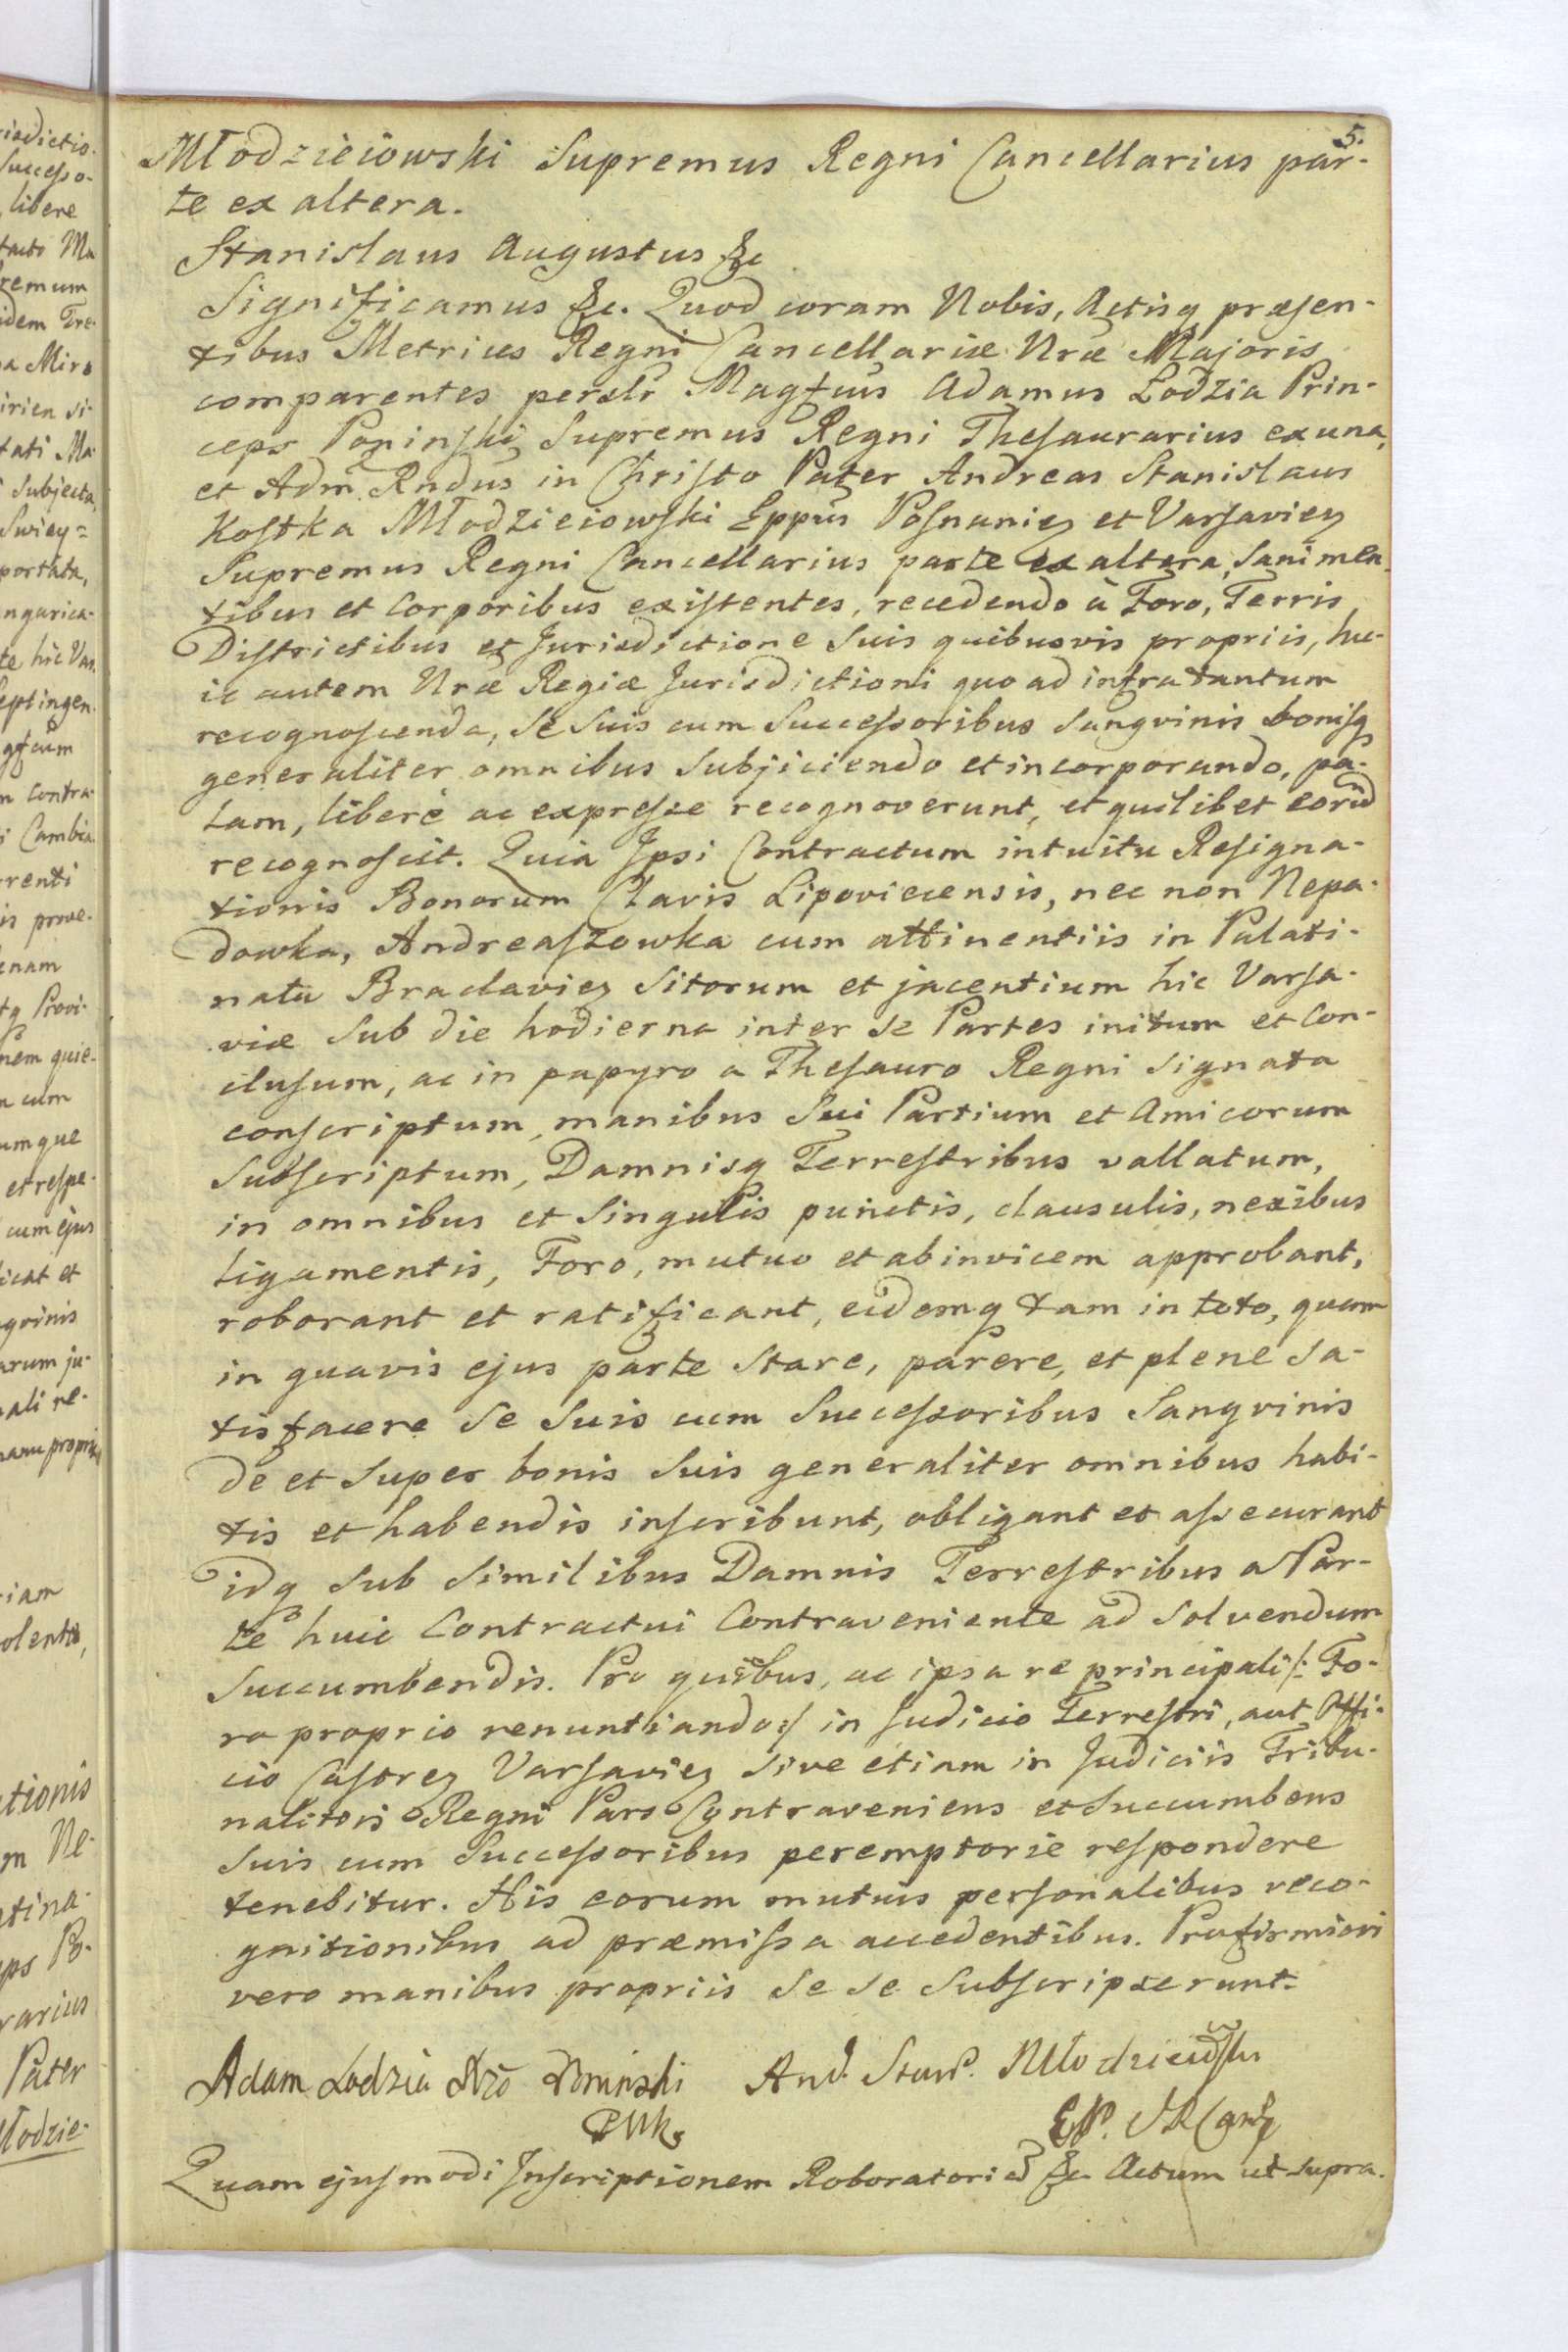 5.
Młodzieiowski Supremus Regni Cancellarius par-
te ex altera.
Stanislaus Augustus &c
Significamus &c. Quod coram Nobis, Actisq præsen-
tibus Metrices Regni Cancellariæ Nræ Majoris
comparentes persltr Magfcus Adamus Lodzia Prin-
ceps Poninski Supremus Regni Thesaurarius ex una,
et Adm. Rndus in Christo Pater Andreas Stanislaus
Kostka Młodzieiowski Eppus Posnaniez et Varsaviez
Supremus Regni Cancellarius parte ex altera, Sani men-
tibus et Corporibus existentes, recedendo à Foro, Terris,
Districtibus et Jurisdictione Suis quibusvis propriis, hu-
ic autem Nræ Regiæ Jurisdictioni quo ad infra tantum
recognoscenda, Se Suis cum Successoribus Sangvinis bonisq
generaliter omnibus Subjiciendo et incorporando, pa-
lam, liberè ac expresse recognoverunt, et quilibet eorũ
recognoscit. Quia Ipsi Contractum intuitu Resigna-
tionis Bonorum Clavis Lipoviecensis, nec non Nepa-
dowka, Andreaszowka cum attinentiis in Palati-
natu Braclaviez Sitorum et jacentium hic Varsa-
viæ Sub die hodierna inter Se Partes initum et Con-
clusum, ac in papyro a Thesauro Regni Signata
conscriptum, manibus Sui Partium et Amicorum
Subscriptum, Damnisq Terrestribus vallatum,
in omnibus et Singulis punctis, clausulis, nexibus
ligamentis, Foro, mutuo et ab invicem approbant,
roborant et ratificant, eidemq tam in toto, quam
in quavis ejus parte Stare, parere, et plene Sa-
tisfacere Se Suis cum Successoribus Sangvinis
de et Super bonis Suis generaliter omnibus habi-
tis et habendis inscribunt, obligant et assecurant
idq Sub Similibus Damnis Terrestribus a Par-
te huic Contractui Contraveniente ad Solvendum
Succumbendis. Pro quibus, ac ipsa re principali /: Fo-
ro proprio renuntiando :/ in Judicio Terrestri, aut Offi-
cio Castrez Varsaviez Sive etiam in Judiciis Tribu-
nalitiis Regni Pars Contraveniens et Succumbens
Suis cum Successoribus peremptorie respondere
tenebitur. His eorum mutuis personalibus reco-
gnitionibus ad præmissa accedentibus. Pro firmiori
vero manibus propriis Se Se Subscripserunt.
Adam Lodzia Poninski And. Stan. Młodzieiowski
PWK.
Quam ejusmodi Inscriptionem Roboratoriã &c Actum ut Supra.